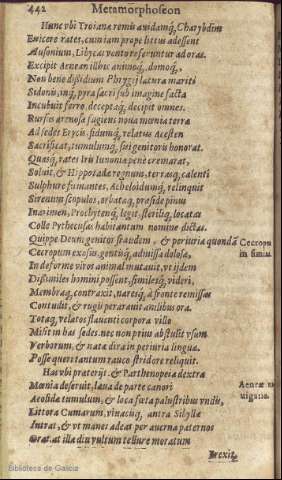 442 Metamorphoseon
Hunc vbi Troianæ remis auidamq́; Charybdim
Euicere rates, cum iam prope littus adessent
Ausonium, Libycas vento referuntur ad oras.
Excipit Aenean illic animoq́;, domoq́;,
Non bene dissidium Phrygij latura mariti
Sidonis, inq́; pyra sacri sub imagine facta
Incubuit ferro, deceptaq́; decipit omnes.
Rursus arenosæ fugiens noua mœnia terræ
Ad sedes Erycis, fidumq́; relatus Acesten
Sacrificat, tumulumq́; sui genitoris honorat.
Quasq́; rates Iris Iunonia penè cremarat,
Soluit, & Hippotadæ regnum, terrasq́; calenti
Sulphure fumantes, Acheloidumq́; relinquit
Sirenum scopulos, orbataq́; præside pinus
Inarimen, Prochytenq́; legit, steriliq́; locatas
Colle Pythecusas habitantum nomine dictas.
Quippe Deum genitor fraudem, & periuria quondã
Cecropum exosus, gentisq́; admissa dolosæ,
In deforme viros animal mutauit, vt ijdem
Dissimiles homini possent, similesq́; videri,
Membraq́; contraxit, naresq́; à fronte remissas
Contudit, & rugis perarauit anilibus ora.
Totaq́; velatos flauenti corpora villo
Misit in has sedes. nec non prius abstulit vsum
Verborum, & natæ dira in periuria linguæ.
Posse queri tantum rauco stridore reliquit.
Has vbi præterijt, & Parthenopeia dextra
Mœnia deseruit, læua de parte canori
Aeolidæ tumulum, & loca fœta palustribus vndis,
Littora Cumarum, viuacisq́; antra Sibyllæ
Intrat, & vt manes adeat per auerna paternos
Orat. at illa diu vultum tellure moratum
Erexit
Cecropum
in simias.
Aeneæ na
uigatio.
Biblioteca de Galicia